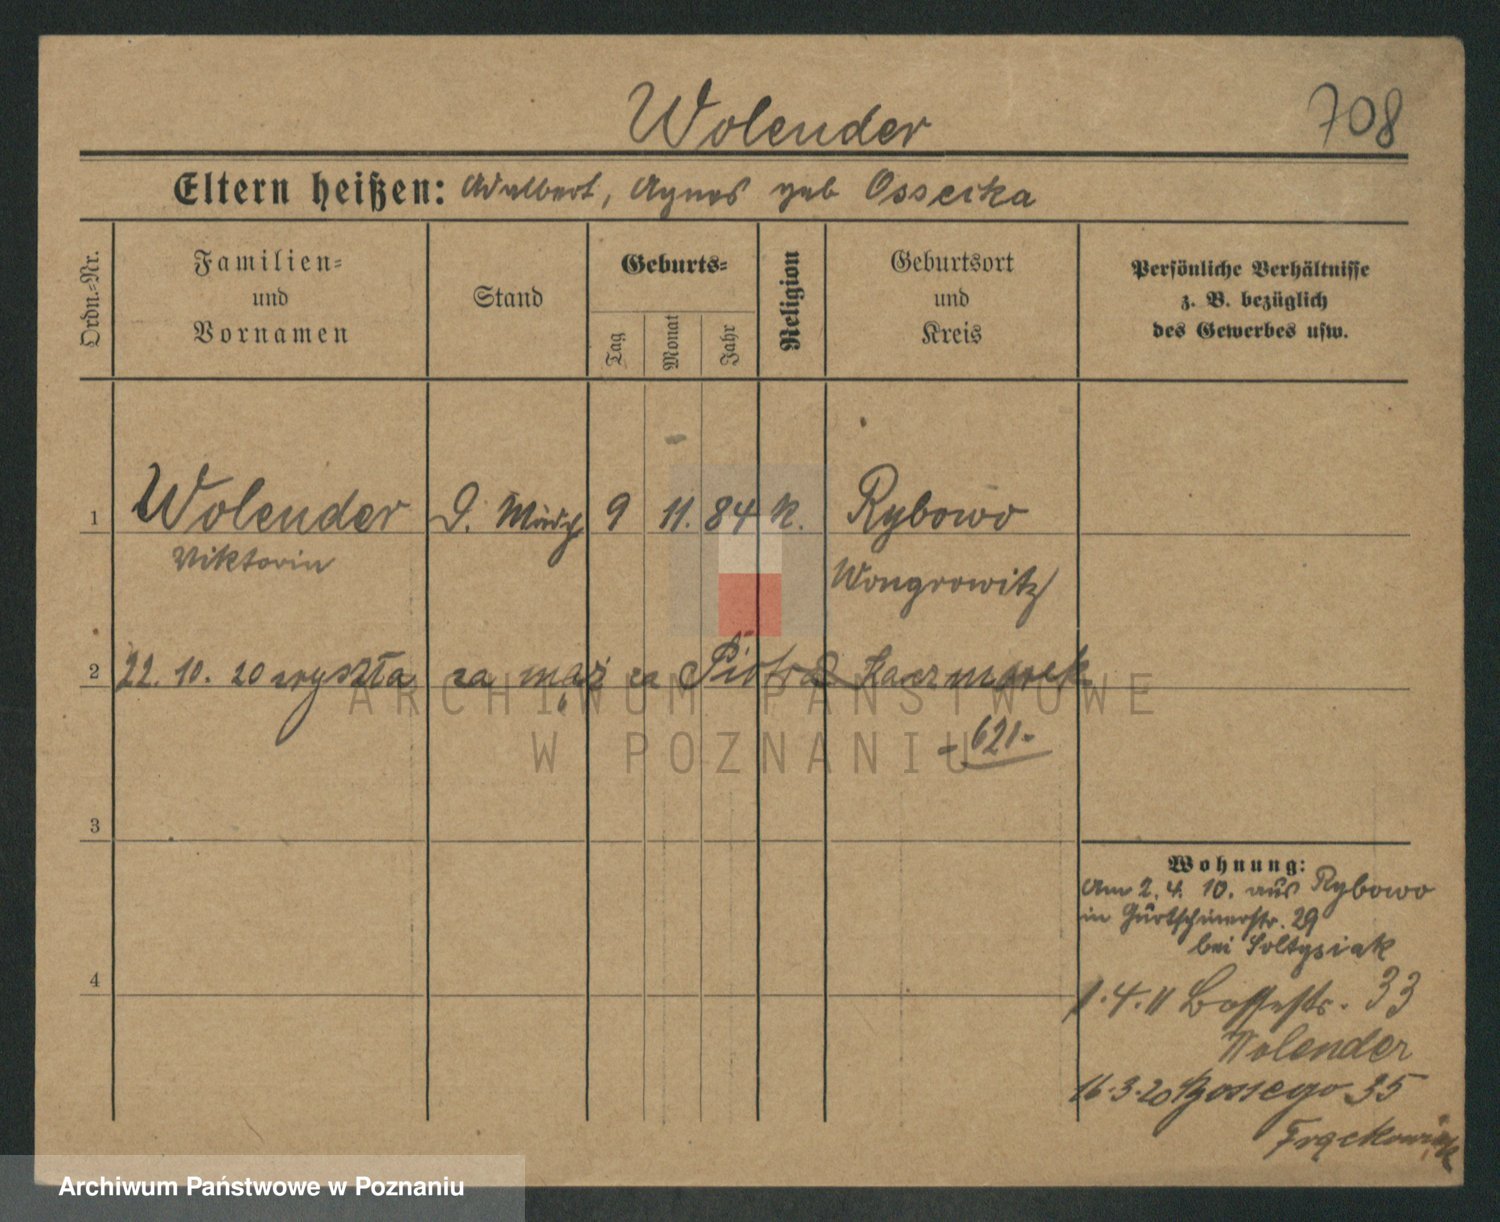 Wolender 708
Eltern heißen: Adalbert, Agnes geb Osseika
Ordn.-Nr.
Familien-
und
Vornamen
Stand
Geburts-
Tag
Monat
Jahr
Religion
Geburtsort
und
Kreis
Persönliche Verhältnisse
z. B. bezüglich
des Gewerbes usw.
1 Wolender D. Mädch 9 11. 84 K. Rybowo
Viktoria Wongrowitz
2 22. 10. 20 wyszła za mąż za Piotra Kaczmarek
- 621 -
3
Wohnung:
Am 2. 4. 10. aus Rybowo
in Gurtschinerstr. 29
bei Soltysiak
4
1. 4. 11 Bossestr. 33
Wolender
16. 3. 20 Bossego 35
Frąckowiak
ARCHIWUM PAŃSTWOWE
W POZNANIU
Archiwum Państwowe w Poznaniu